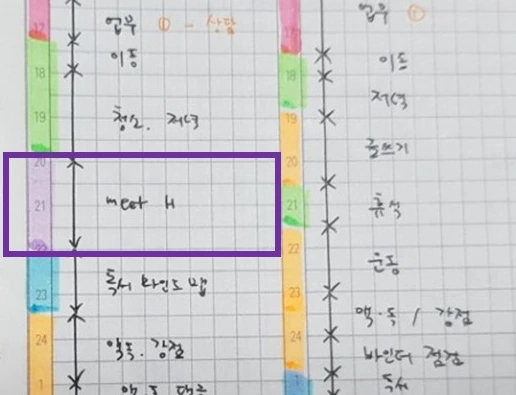 17
업무 ① - 상담
이동
18
19
청소. 저녁
20
21
meet H
22
독서 바인드 맵
23
24
맥독. 강점
1
17
업무 ①
이동
18
저녁
19
글쓰기
20
21
휴식
22
운동
23
맥.독 / 강점
24
바인더 점검
1
독서